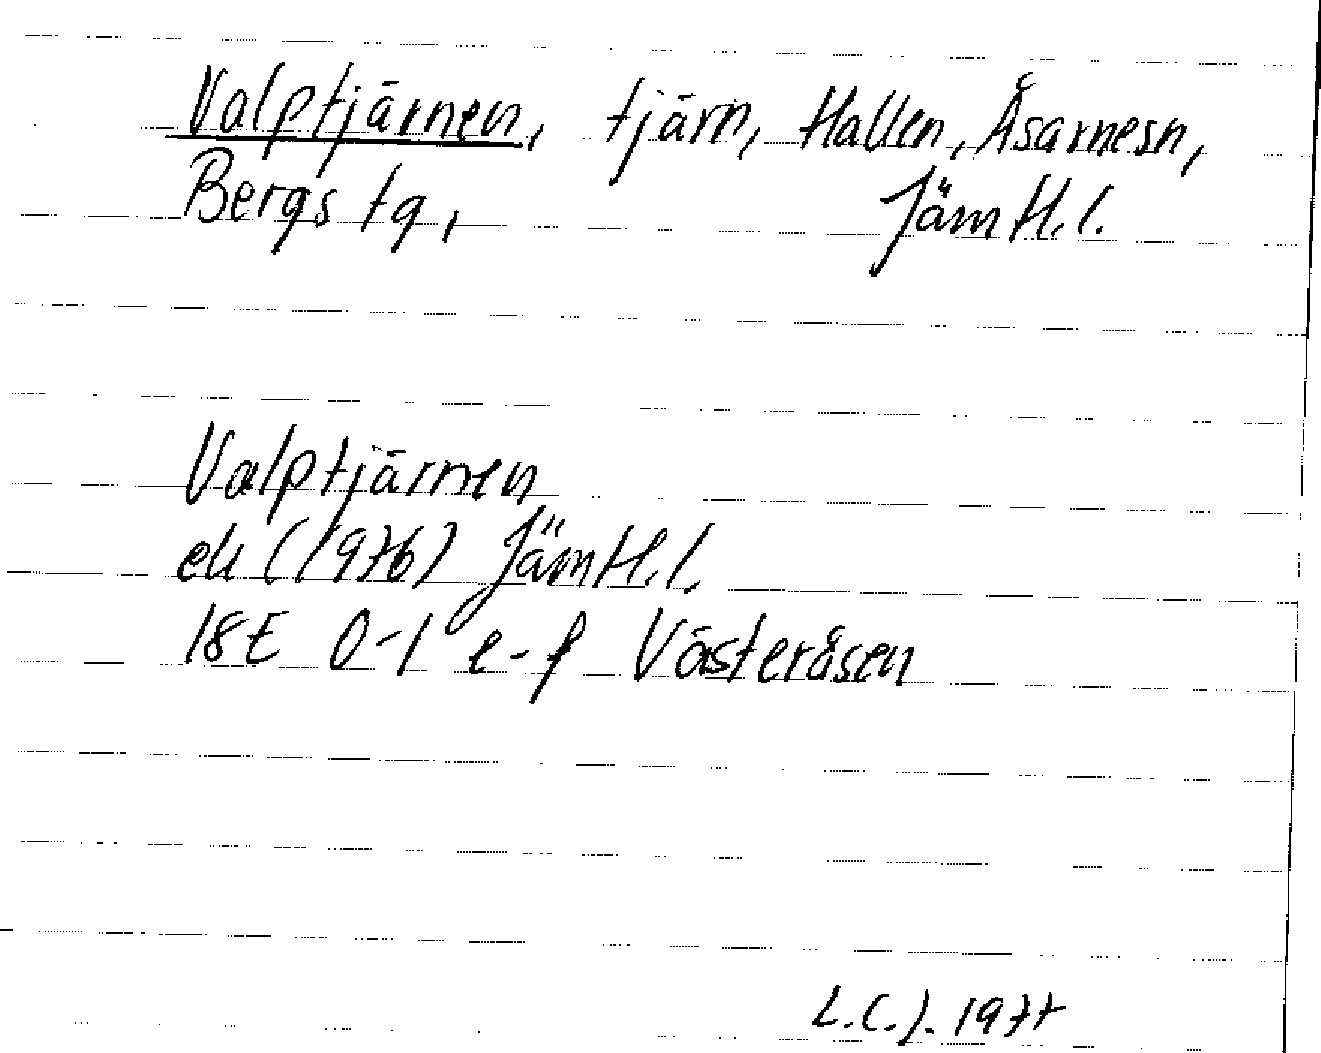 Valptjärnen, tjärn, Hallen, Åsarnesn,
Bergs tg, Jämtl. l.
Valptjärnen
ek (1976) Jämtl. l.
18E 0-1 e-f Västeråsen
L.C.J. 1977